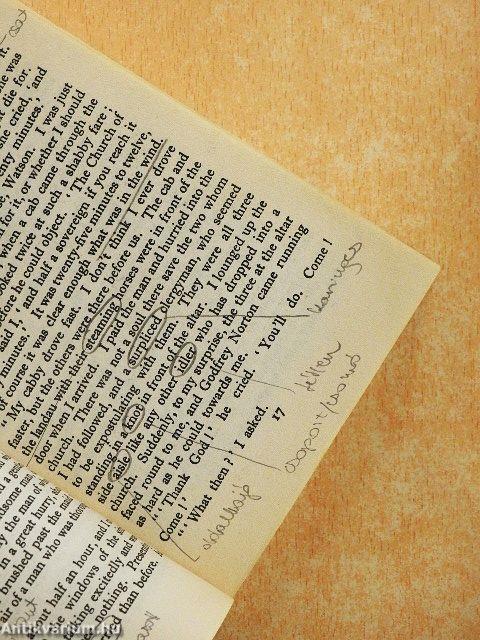 it.
was
die for.
she cried, ‘and
twenty minutes.’
Watson. I was just
for it, or whether I should
when a cab came through the
looked twice at such a shabby fare;
before he could object. ‘The Church of
said I, ‘and half a sovereign if you reach it
minutes.’ It was twenty-five minutes to twelve,
of course it was clear enough what was in the wind.
“My cabby drove fast. I don't think I ever drove
faster, but the others were there before us. The cab and
the landau with their steaming horses were in front of the
door when I arrived. I paid the man and hurried into the
church. There was not a soul there save the two whom
I had followed, and a surpliced clergyman, who seemed
to be expostulating with them. They were all three
standing in a knot in front of the altar. I lounged up the
side aisle like any other idler who has dropped into a
church. Suddenly, to my surprise, the three at the altar
faced round to me, and Godfrey Norton came running
as hard as he could towards me.
“‘Thank God!’ he cried. ‘You'll do. Come!
Come!’
“‘What then?’ I asked.
17
in a great hurry,
brushed past the
air of a man who was
half an hour, and
the windows of the
talking excitedly and
nothing. Presently
than before.
Antikvarium.hu